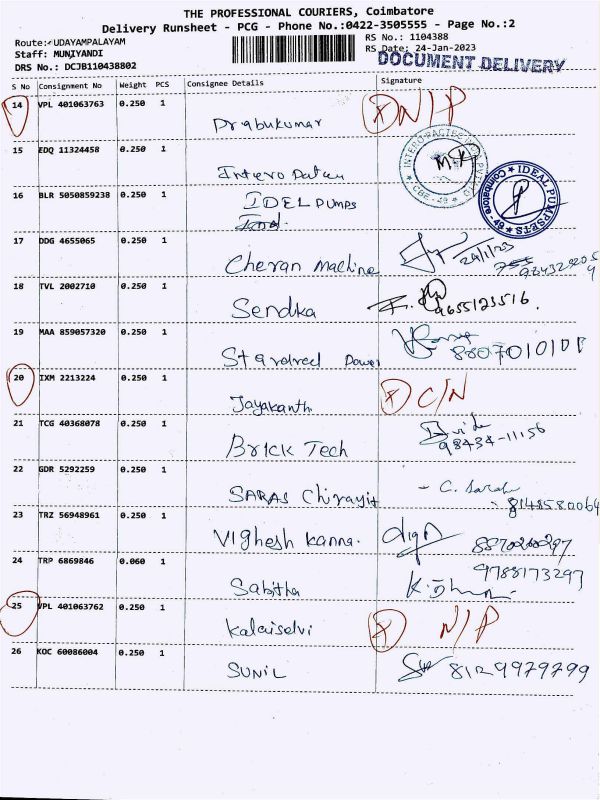 THE PROFESSIONAL COURIERS, Coimbatore
Delivery Runsheet - PCG - Phone No.:0422-3505555 - Page No.:2
Route: UDAYAMPALAYAM
Staff: MUNIYANDI
DRS No.: DCJB110438802
RS No.: 1104388
RS Date: 24-Jan-2023
DOCUMENT DELIVERY
S No Consignment No Weight PCS Consignee Details Signature
14 VPL 401063763 0.250 1 Prabukumar X N/P
15 EDQ 11324458 0.250 1 Intero
16 BLR 5050859238 0.250 1 IDEL PUMPS
IDEAL PUMPSETS Coimbatore
17 DDG 4655065 0.250 1 Cheran Machine 24/1/23
18 TVL 2002710 0.250 1 Sendka 9655123516.
19 MAA 859057320 0.250 1 Standred Power
20 IXM 2213224 0.250 1 Jayakanth X C/N
21 TCG 40368078 0.250 1 Brick Tech 98434-11156
22 GDR 5292259 0.250 1 SARAS Chirayit - C. Sarah
8148580064
23 TRZ 56948961 0.250 1 Vighesh Kanna.
24 TRP 6869846 0.060 1 Sabitha 9788173297
25 VPL 401063762 0.250 1 Kalaiselvi X N/P
26 KOC 60086004 0.250 1 SUNIL 8129979799